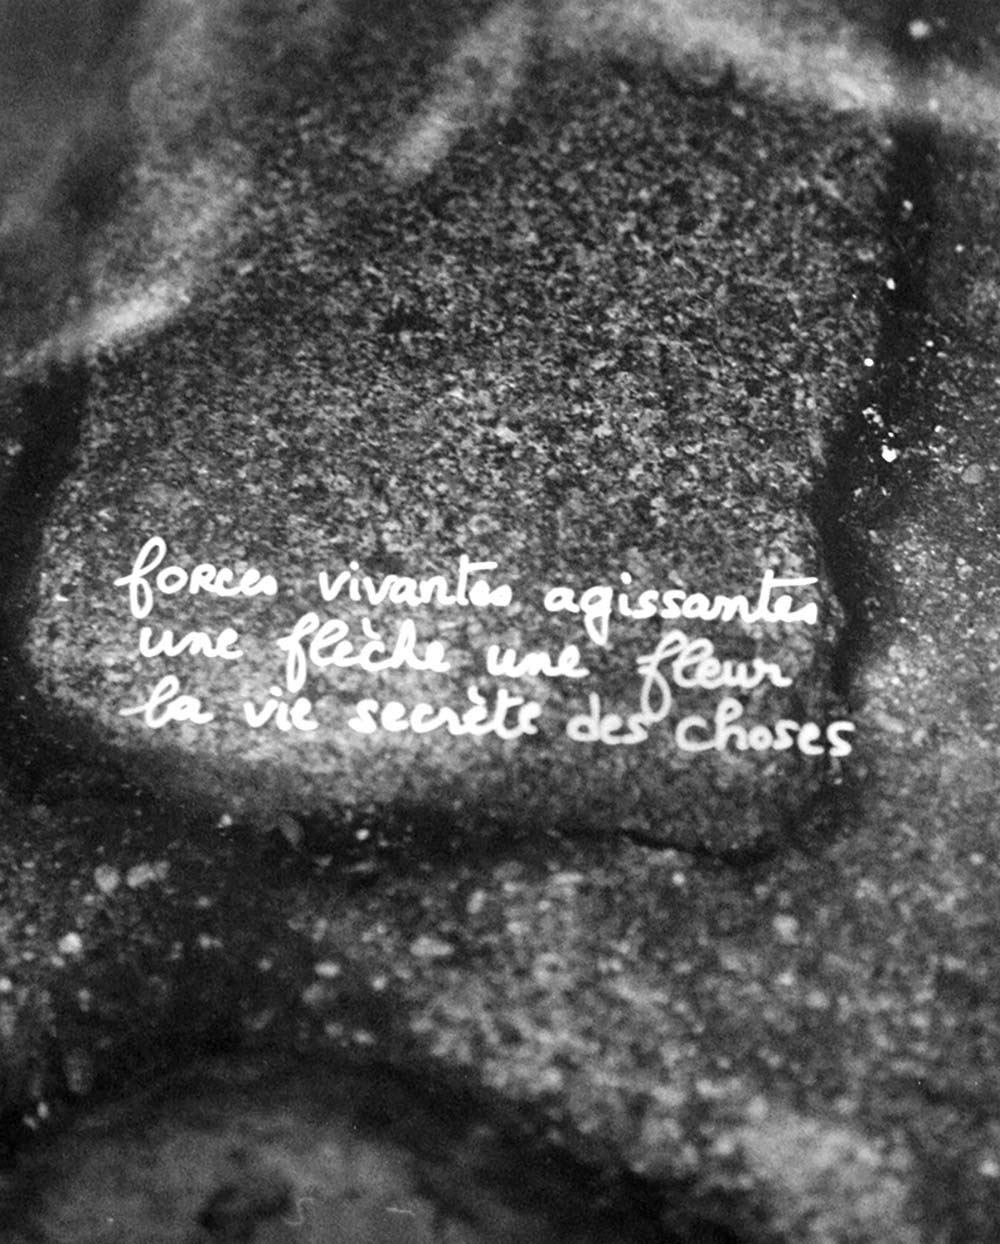 forces vivantes agissantes
une flèche une fleur
la vie secrète des choses